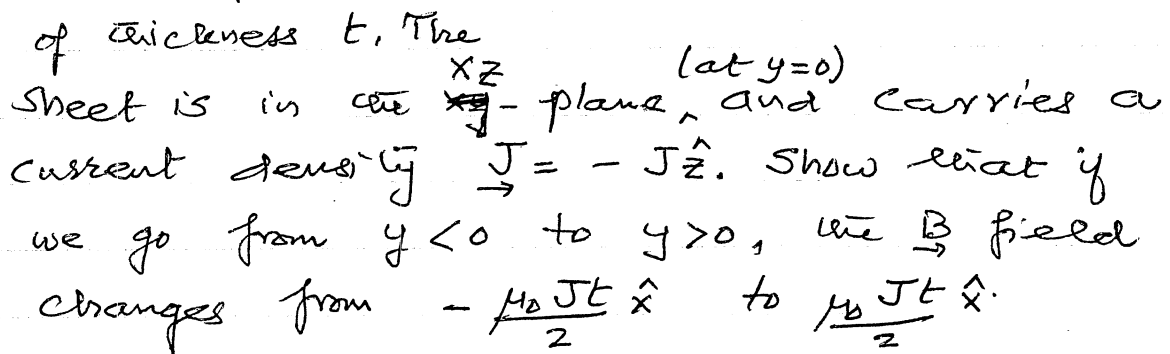 of thickness t. The
xz (at y=0)
sheet is in the xy-plane ^ and carries a
current density J = - Jẑ. Show that if
we go from y<0 to y>0, the B field
changes from - μ₀Jt/2 x̂ to μ₀Jt/2 x̂.